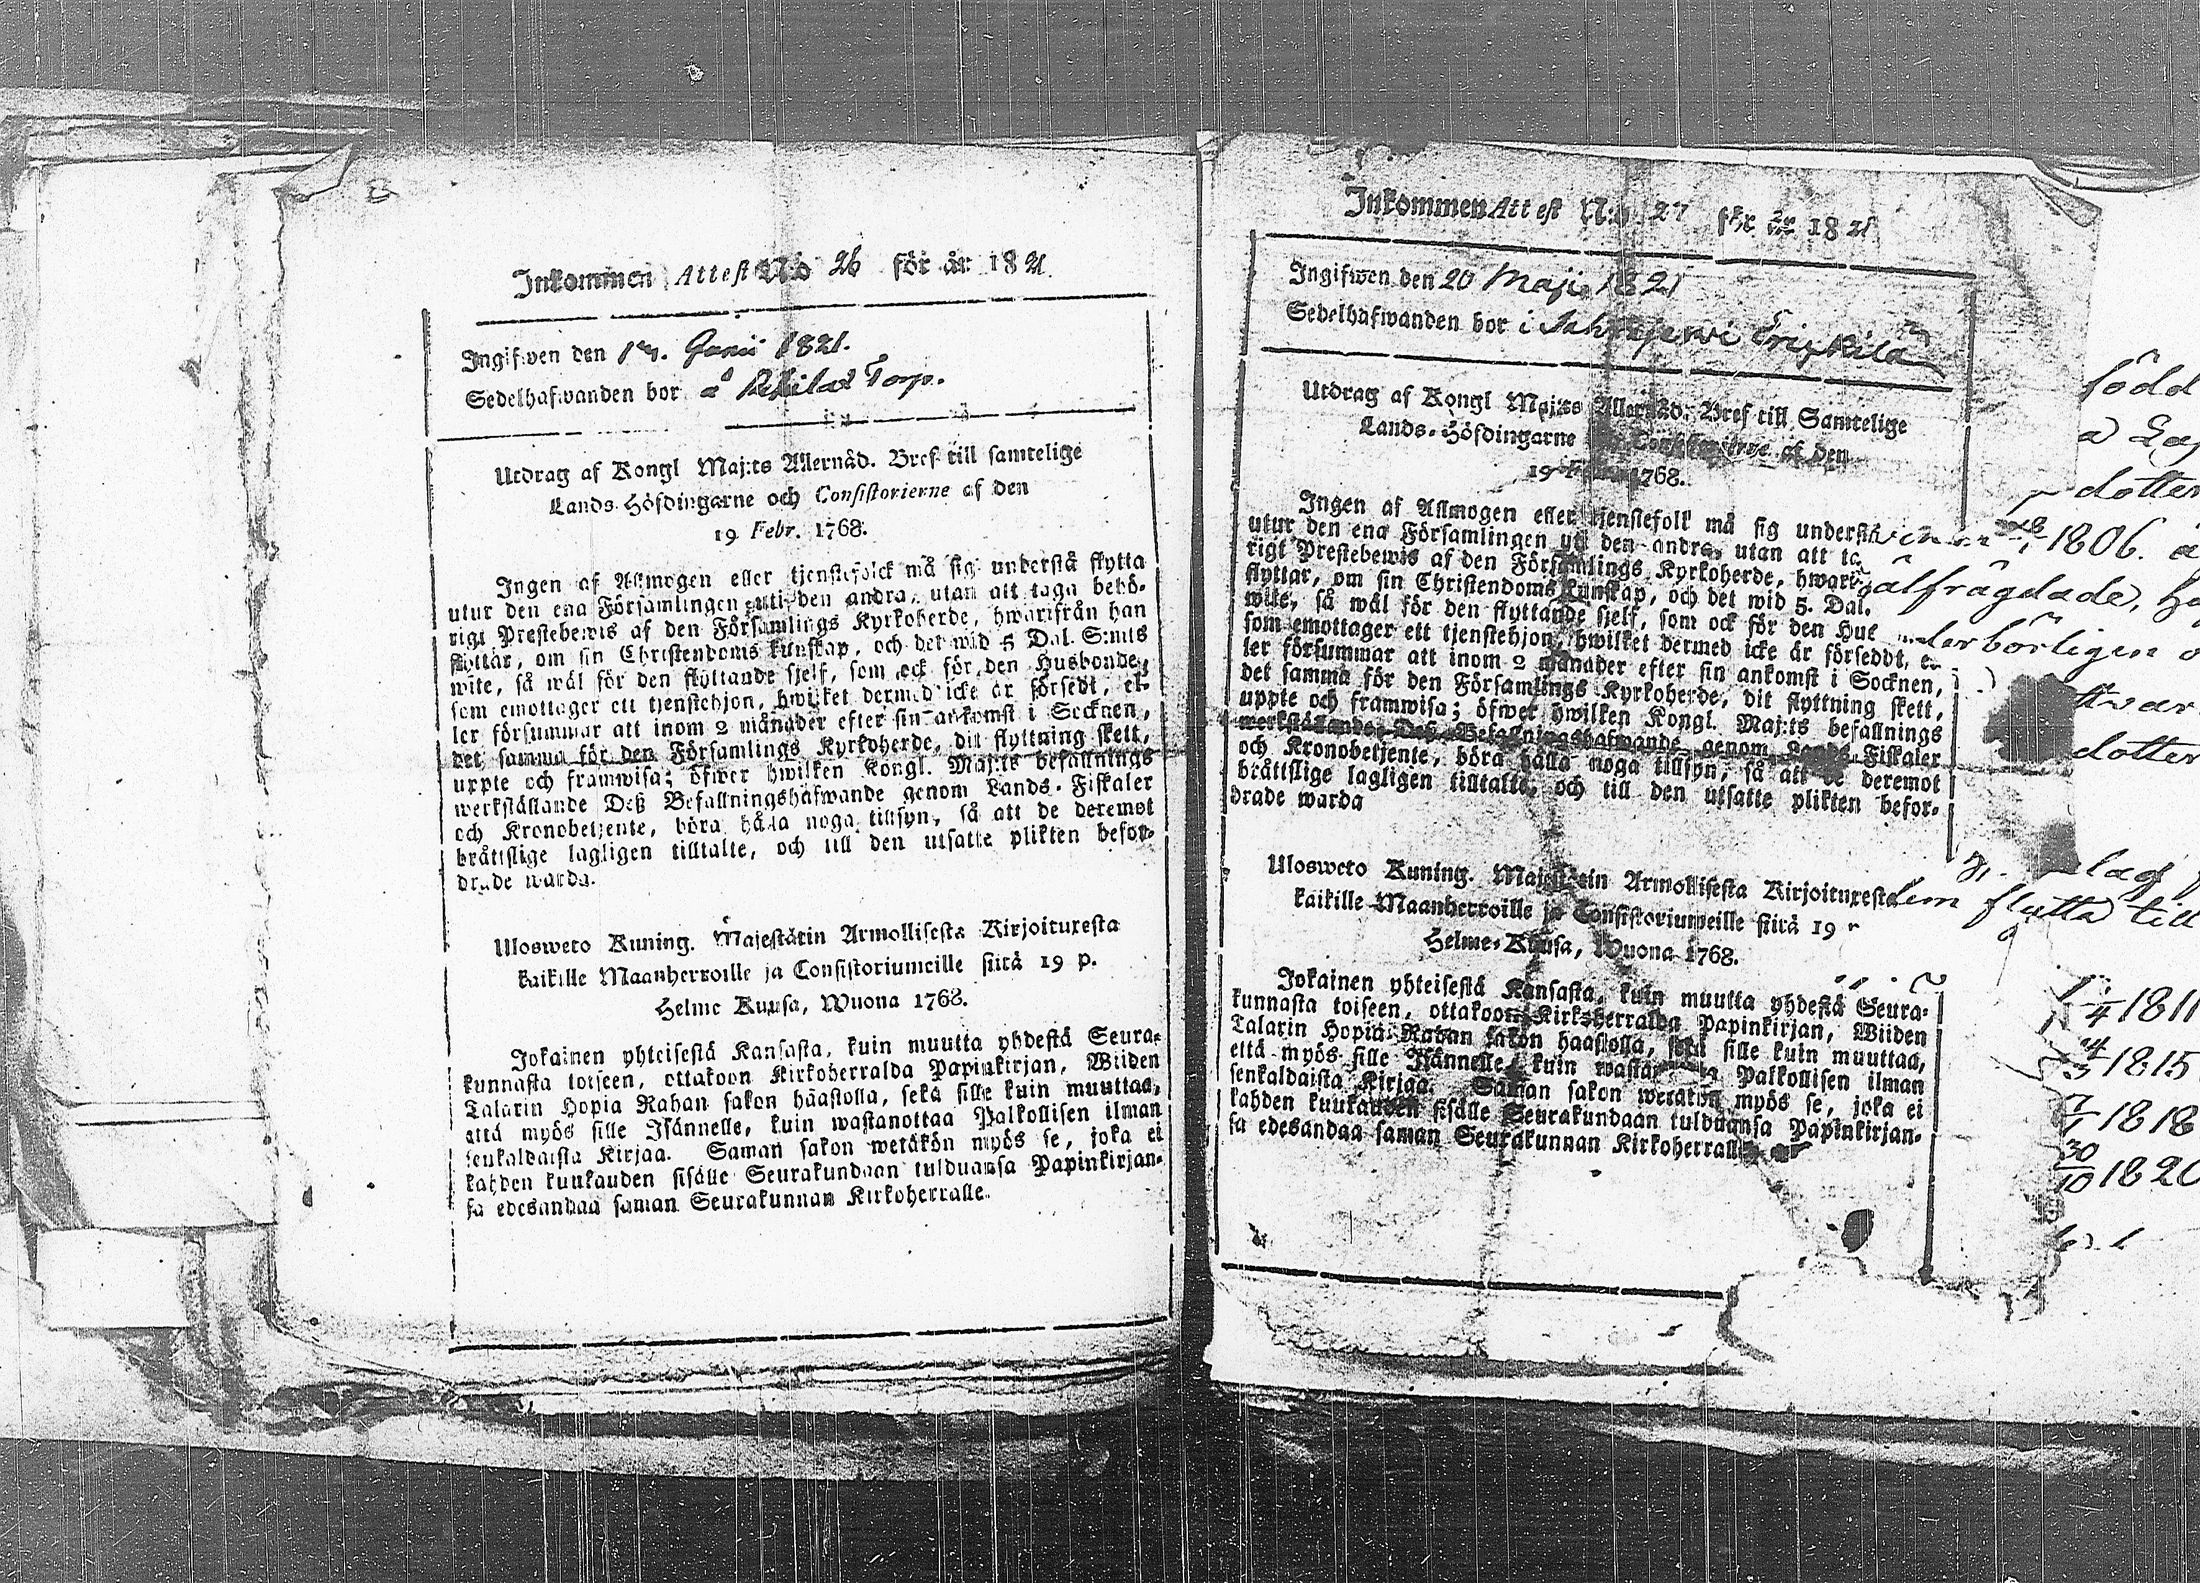 Inkommen Attest No 26 för år 1821.
Ingifwen den 17. Junii 1821.
Sedelhafwanden bor å Torp.
Utdrag af Kongl Maj:ts Allernåd. Bref till samtelige
Lands-Höfdingarne och Consistorierne af den
19 Febr. 1768.
Ingen af Allmogen eller tjenstefolck må sig understå flytta
utur den ena Församlingen uti den andra, utan att taga behö-
rigt Prestebewis af den Församlings Kyrkoherde, hwarifrån han
flyttar, om sin Christendoms kunskap, och det wid 5 Dal. S:mts
wite, så wäl för den flyttande sjelf, som ock för den Husbonde,
som emottager ett tjenstehjon, hwilket dermed icke är försedt, el-
ler försummar att inom 2 månader efter sin ankomst i Socknen,
det samma för den Församlings Kyrkoherde, dit flyttning skett,
uppte och framwisa; öfwer hwilken Kongl. Maj:ts befallnings
werkställande Deß Befallningshafwande genom Lands-Fiskaler
och Kronobetjente, böra hålla noga tillsyn, så att de deremot
bråttslige lagligen tilltalte, och till den utsatte plikten befor-
drade warda.
Ulosweto Kuning. Majestätin Armollisesta Kirjoituxesta
kaikille Maanherroille ja Consistoriumeille siitä 19 p.
Helme Kuusa, Wuona 1768.
Jokainen yhteisestä Kansasta, kuin muutta yhdestä Seura-
kunnasta toiseen, ottakoon Kirkoherralda Papinkirjan, Wiiden
Talarin Hopia Rahan sakon haastolla, sekä sille kuin muuttaa,
että myös sille Isännelle, kuin wastanottaa Palkollisen ilman
senkaldaista Kirjaa. Saman sakon wetäkön myös se, joka ei
kahden kuukauden sisälle Seurakundaan tulduansa Papinkirjan-
sa edesandaa saman Seurakunnan Kirkoherralle.
Inkommen Attest N:o 27 för år 1821
Ingifwen den 20 Maji 1821
Sedelhafwanden bor i
Utdrag af Kongl Maj:ts Allernåd. Bref till Samtelige
Lands-Höfdingarne och Consistorierne af den
19 Febr. 1768.
Ingen af Allmogen eller tjenstefolk må sig understå
utur den ena Församlingen uti den andra, utan att
rigt Prestebewis af den Församlings Kyrkoherde,
flyttar, om sin Christendoms kunskap, och det wid 5. Dal.
wite, så wäl för den flyttande sjelf, som ock för den
som emottager ett tjenstehjon, hwilket dermed icke är förseddt,
ler försummar att inom 2 månader efter sin ankomst i Socknen,
det samma för den Församlings Kyrkoherde, dit flyttning skett,
uppte och framwisa; öfwer hwilken Kongl. Maj:ts befallnings
werkställande Deß Befallningshafwande genom Lands-Fiskaler
och Kronobetjente, böra hålla noga tillsyn, så att de deremot
bråttslige lagligen tilltalte, och till den utsatte plikten befor-
drade warda
Ulosweto Kuning. Majestätin Armollisesta Kirjoituxesta
kaikille Maanherroille ja Consistoriumeille siitä 19
Helme-Kuusa, Wuona 1768.
Jokainen yhteisestä Kansasta, kuin muutta yhdestä Seura-
kunnasta toiseen, ottakoon Kirkoherralda Papinkirjan, Wiiden
Talarin Hopia Rahan sakon haastolla, sekä sille kuin muuttaa,
että myös sille Isännelle, kuin Palkollisen ilman
senkaldaista Kirjaa. Saman sakon wetäkön myös se, joka ei
kahden kuukauden sisälle Seurakundaan tulduansa Papinkirjan-
sa edesandaa saman Seurakunnan Kirkoherralle
född
dotter
1806.
dotter
flytta till
1811
1815
7/1 1818
30/10 1820